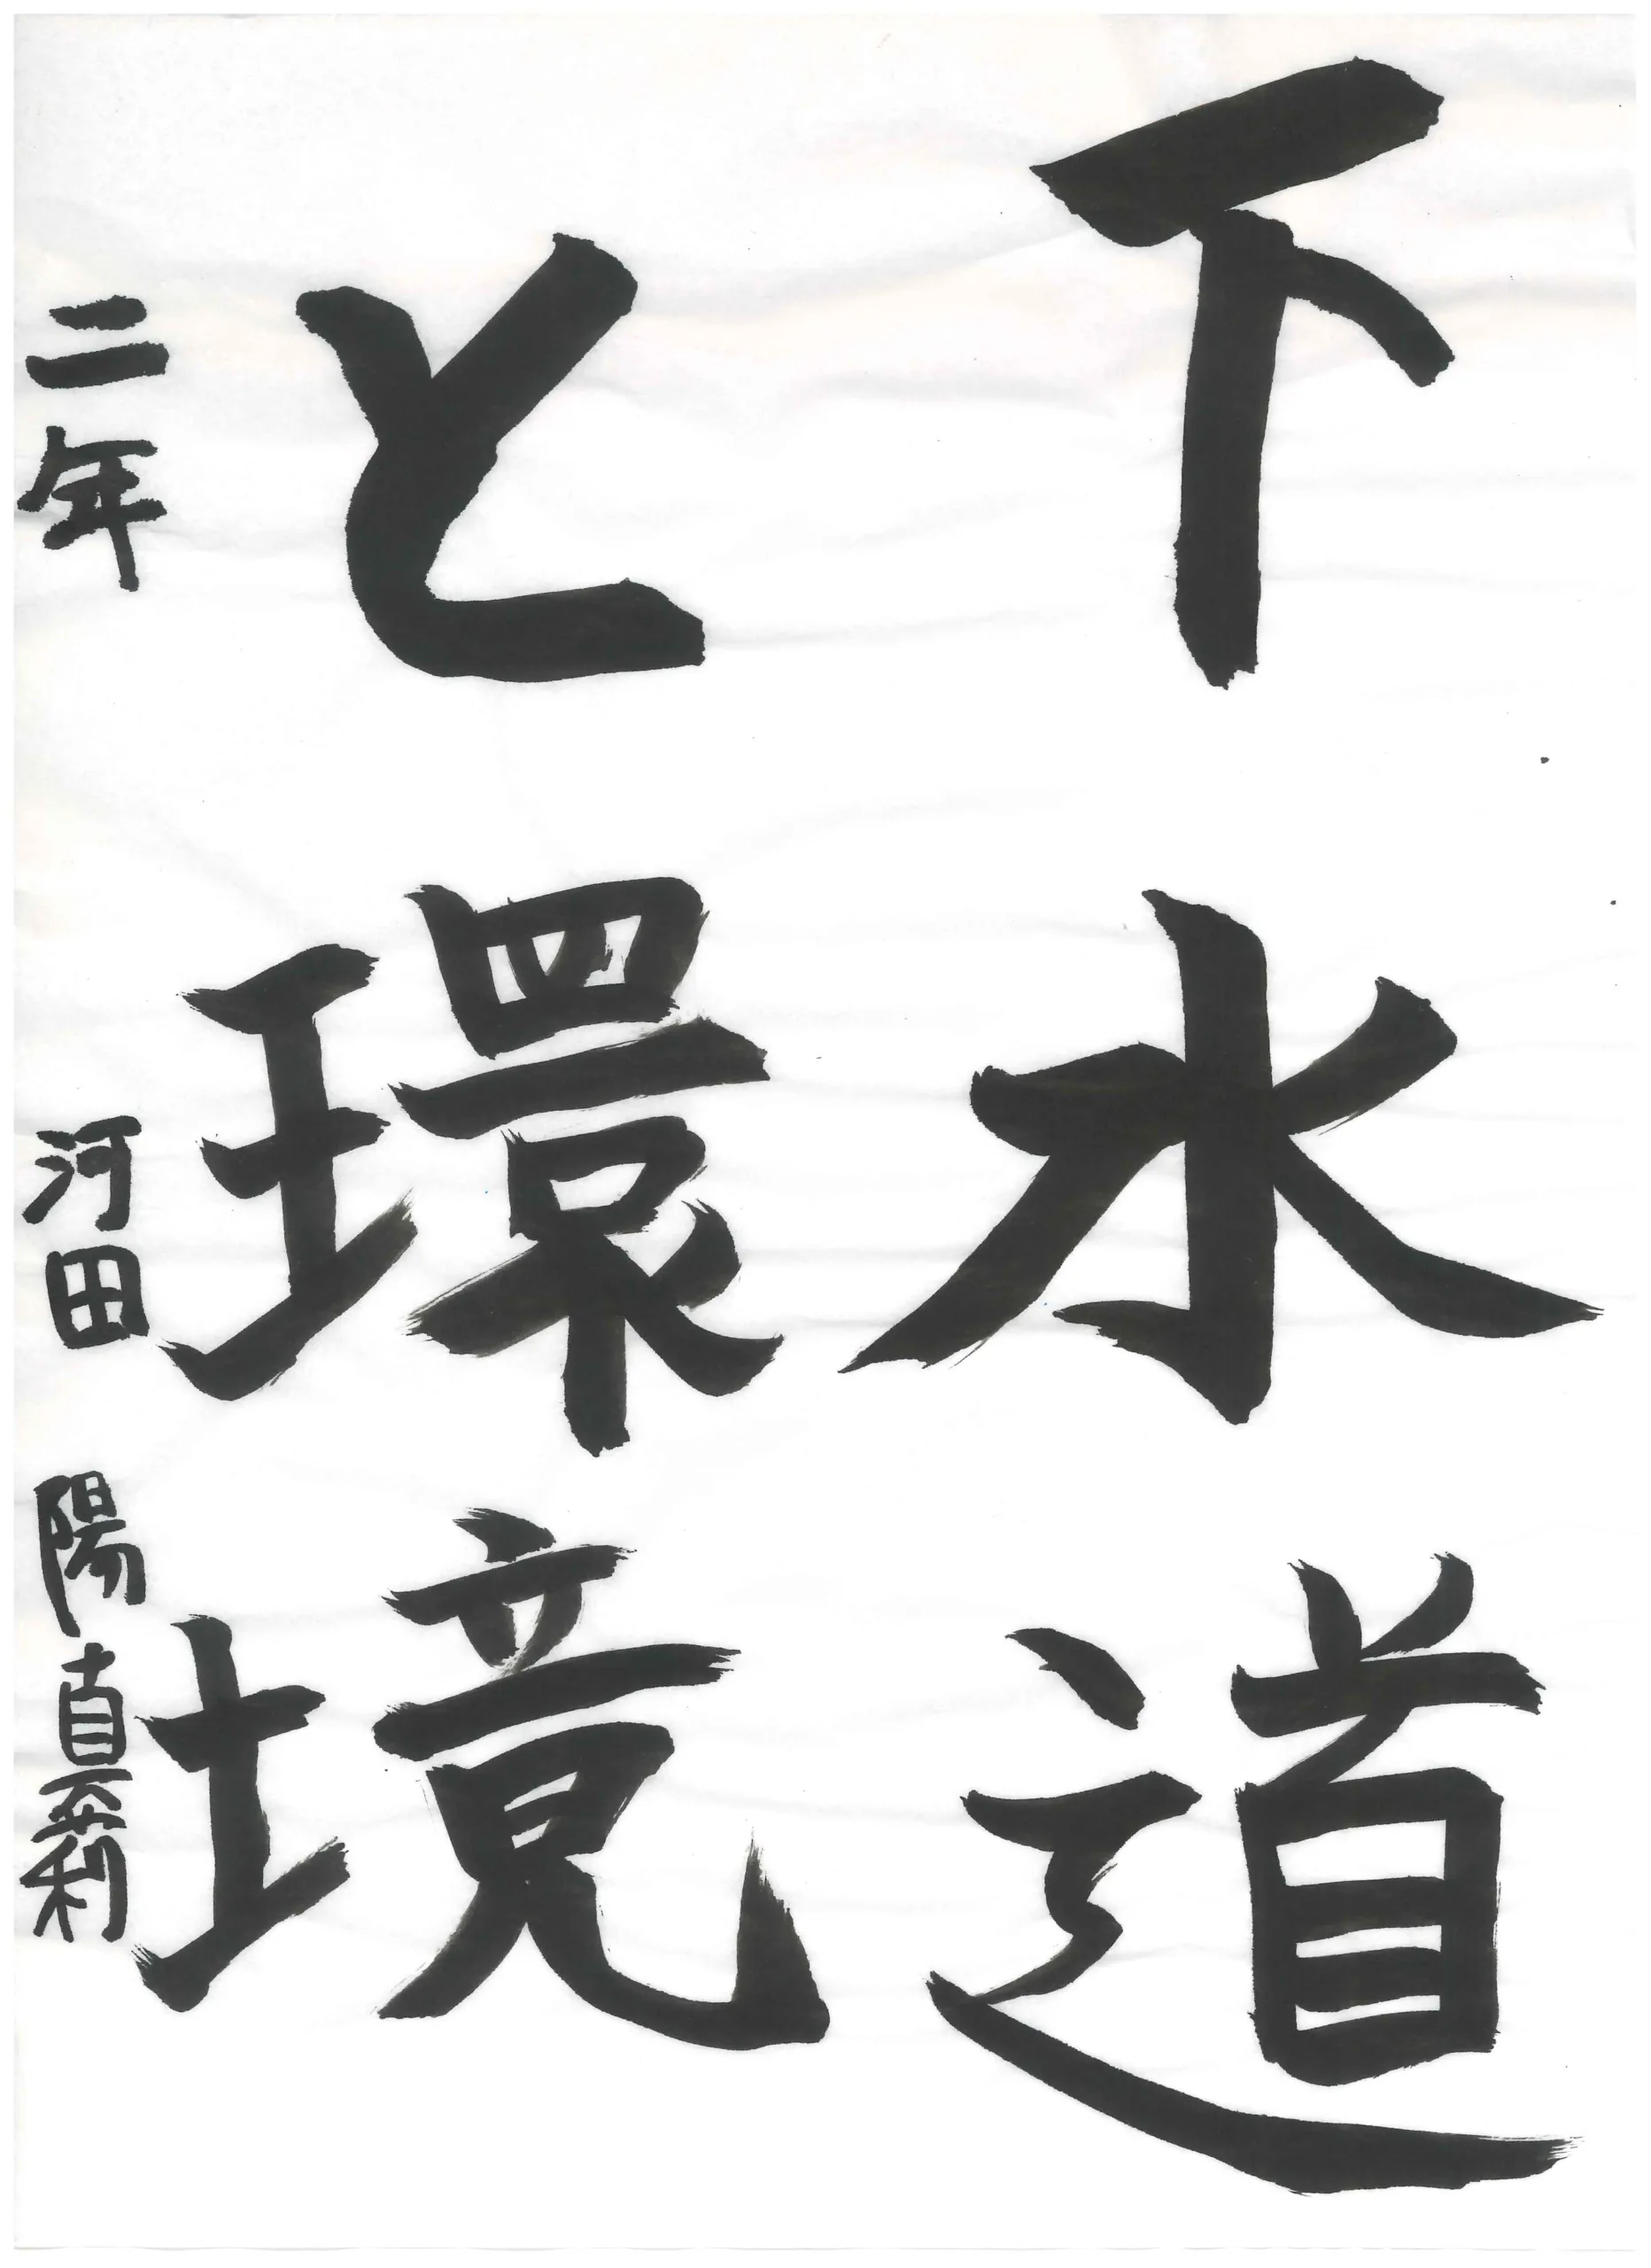 下水道
と環境
二年 河田 陽真莉